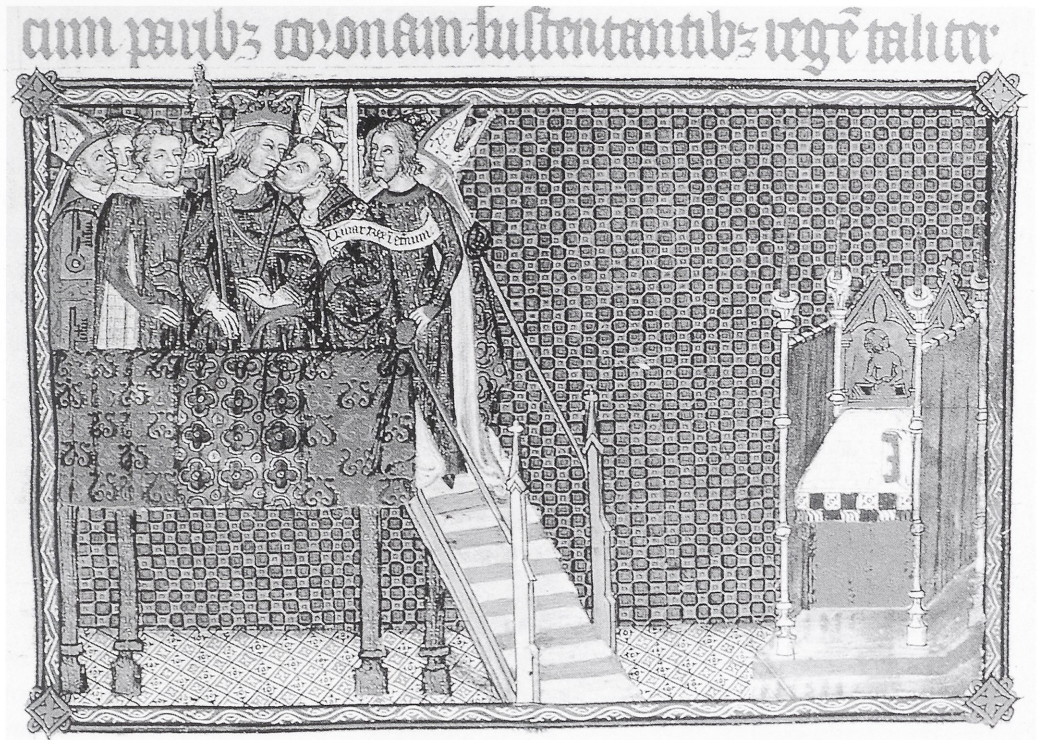 cum paribꝫ coronam sustentantibꝫ regē taliter
Viuat rex ī eternum